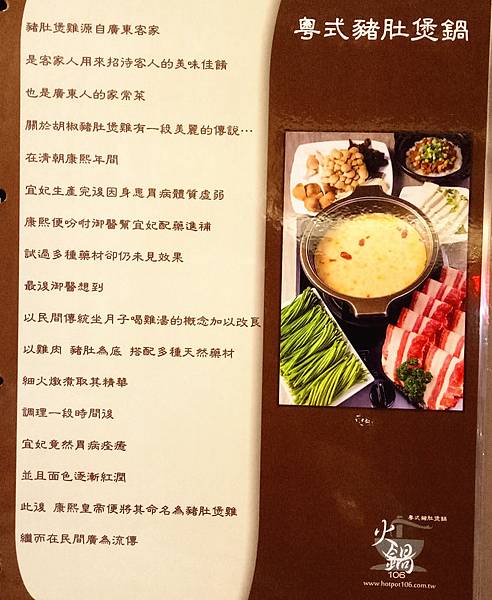 粵式豬肚煲鍋
豬肚煲雞源自廣東客家
是客家人用來招待客人的美味佳餚
也是廣東人的家常菜
關於胡椒豬肚煲雞有一段美麗的傳說…
在清朝康熙年間
宜妃生產完後因身患胃病體質虛弱
康熙便吩咐御醫幫宜妃配藥進補
試過多種藥材卻仍未見效果
最後御醫想到
以民間傳統坐月子喝雞湯的概念加以改良
以雞肉 豬肚為底 搭配多種天然藥材
細火燉煮取其精華
調理一段時間後
宜妃竟然胃病痊癒
並且面色逐漸紅潤
此後 康熙皇帝便將其命名為豬肚煲雞
繼而在民間廣為流傳
粵式豬肚煲鍋
火鍋
106
www.hotpot106.com.tw